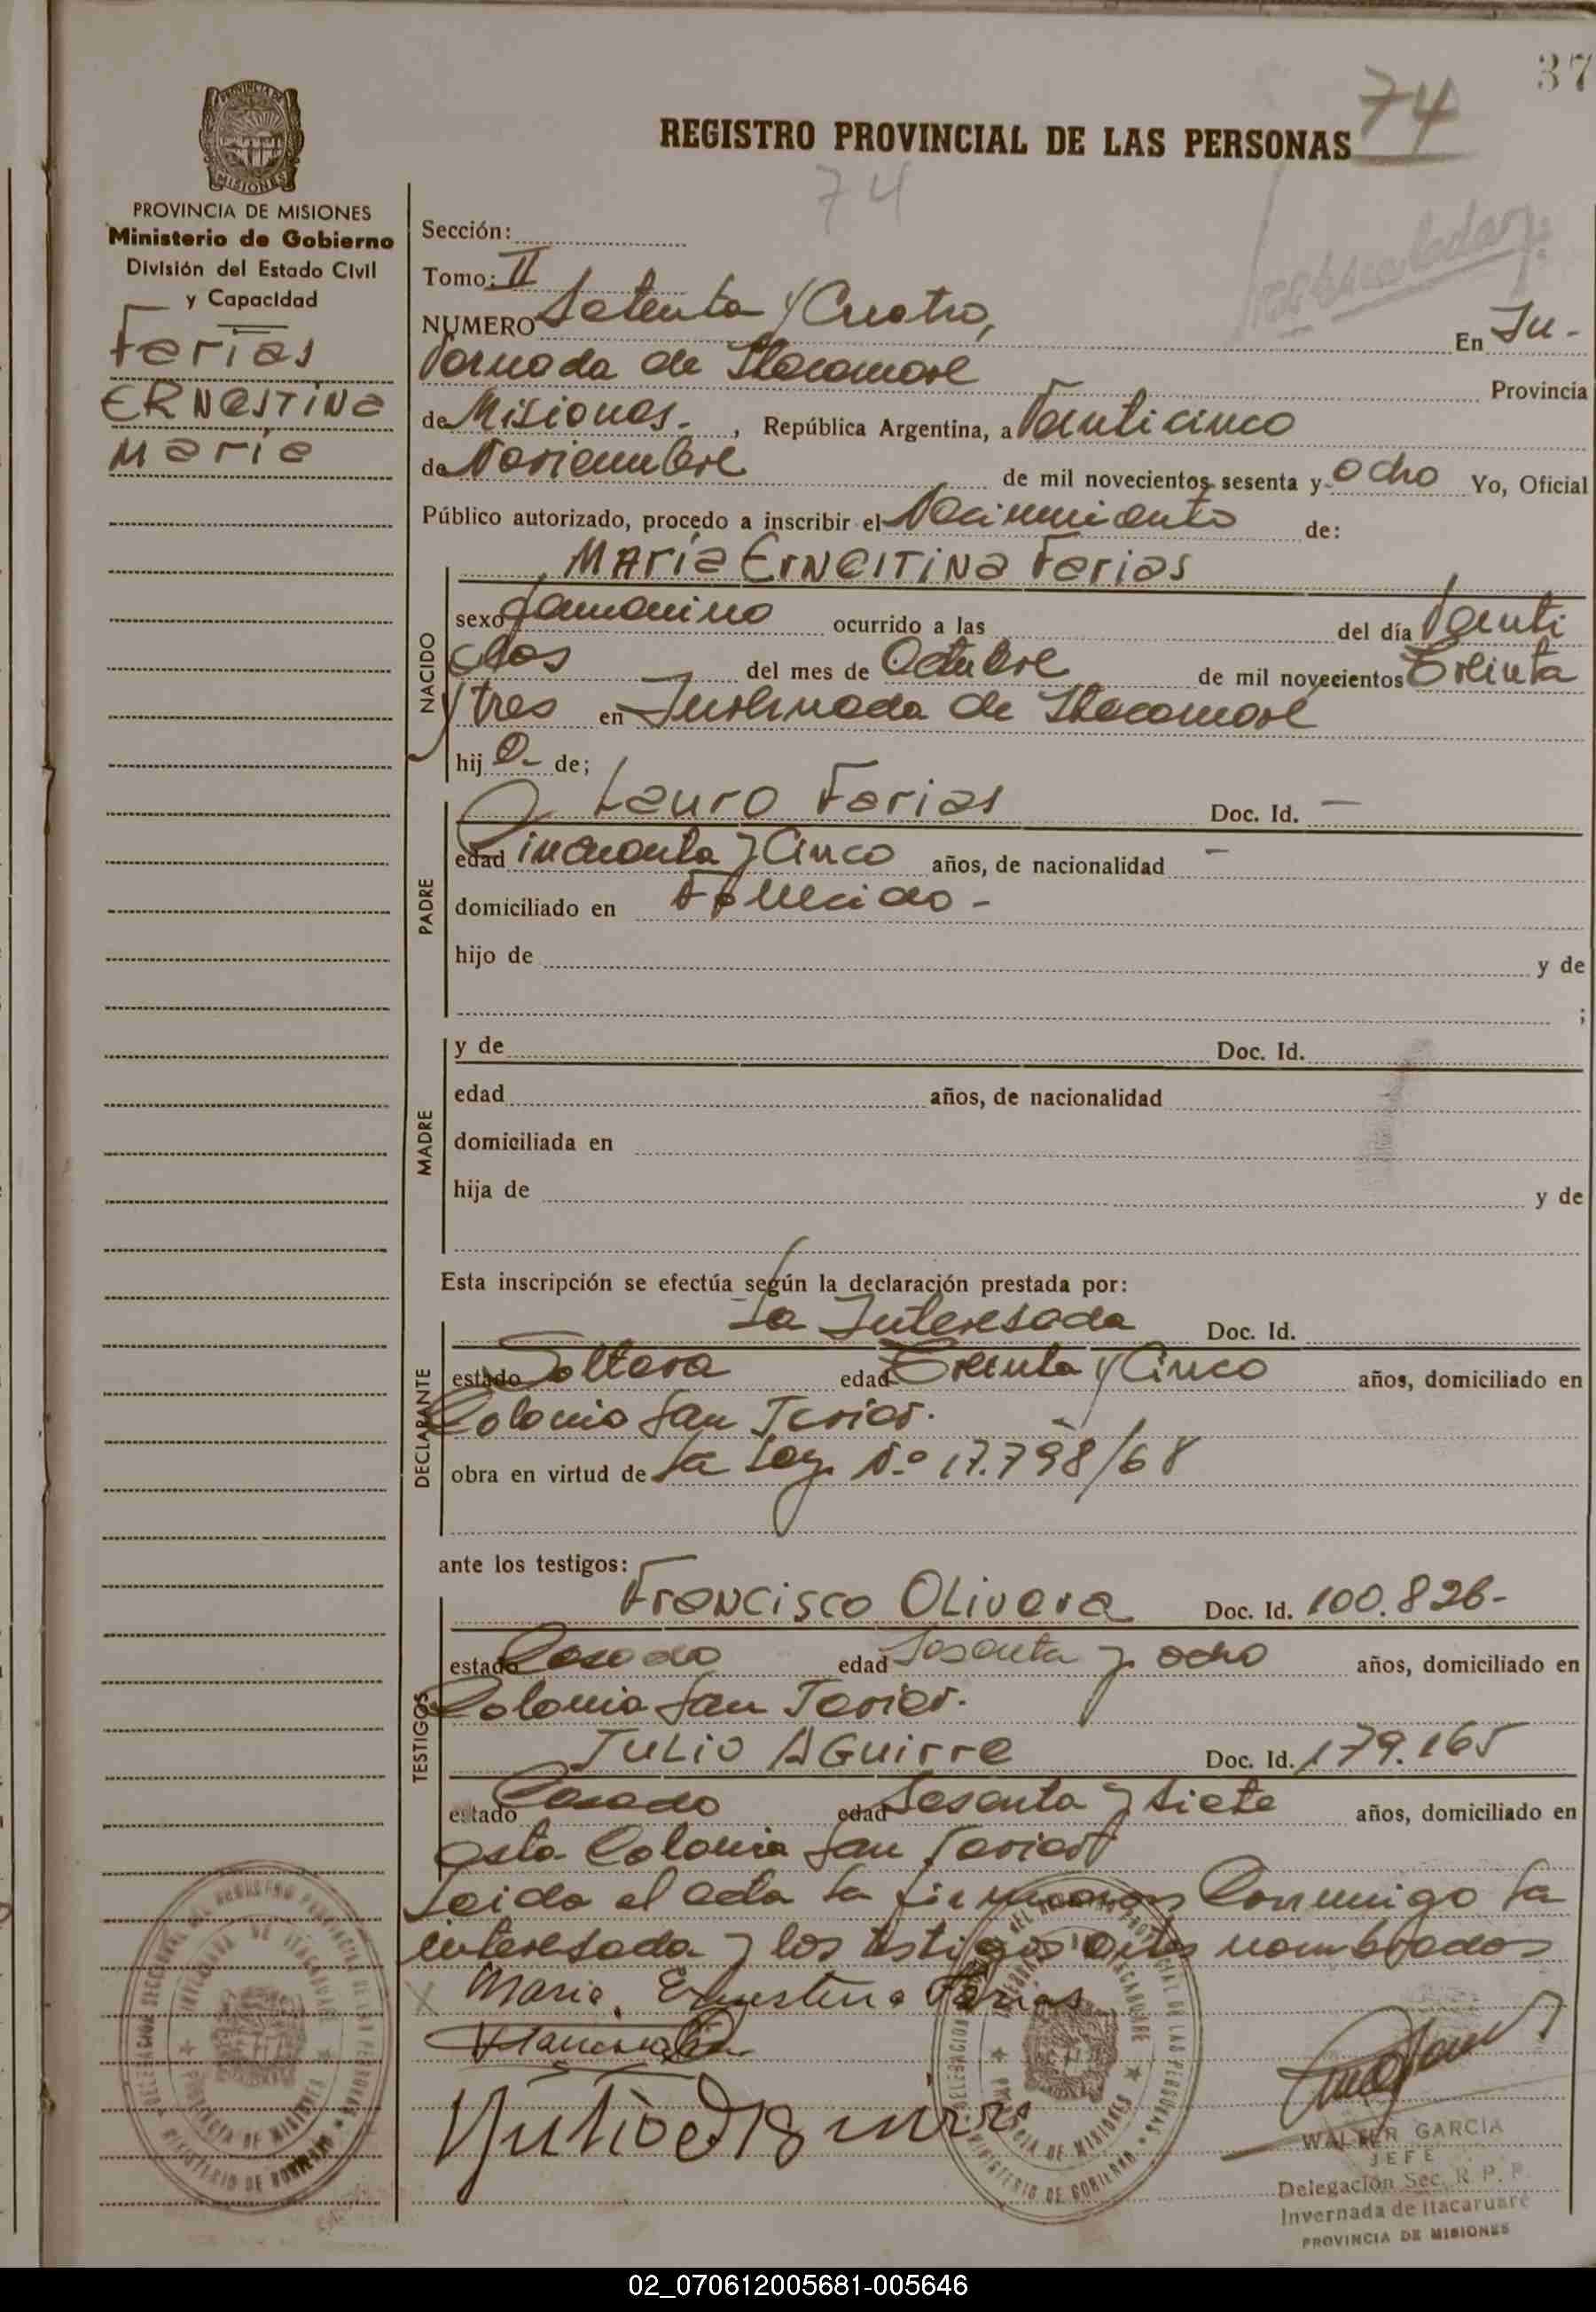 37
REGISTRO PROVINCIAL DE LAS PERSONAS 74
74
PROVINCIA DE
MISIONES
PROVINCIA DE MISIONES
Ministerio de Gobierno
División del Estado Civil
y Capacidad
Farias
ERNESTINA
Maria
Sección:
Tomo: II
NUMERO Setenta y Cuatro, En In-
vernada de Itacaruare Provincia
de Misiones. , República Argentina, a Veinticinco
de Noviembre de mil novecientos sesenta y ocho Yo, Oficial
Público autorizado, procedo a inscribir el Nacimiento de:
NACIDO
María Ernestina Farias
sexo femenino ocurrido a las del día Veinti
dos del mes de Octubre de mil novecientos Treinta
y tres en Invernada de Itacaruare
hij a- de;
PADRE
Lauro Farias Doc. Id. —
edad Cincuenta y Cinco años, de nacionalidad -
domiciliado en Fallecido-
hijo de y de
;
MADRE
y de Doc. Id.
edad años, de nacionalidad
domiciliada en
hija de y de
Esta inscripción se efectúa según la declaración prestada por:
DECLARANTE
La Interesada Doc. Id.
estado Soltera edad Treinta y Cinco años, domiciliado en
Colonia San Javier.
obra en virtud de La Ley N.º 17.798/68
ante los testigos:
TESTIGOS
Francisco Olivera Doc. Id. 100.826-
estado Casado edad Sesenta y ocho años, domiciliado en
Colonia San Javier.
Julio Aguirre Doc. Id. 179.165
estado Casado edad Sesenta y Siete años, domiciliado en
esta Colonia San Javier
Leida el acta la firman Conmigo la
interesada y los testigos antes nombrados
Maria Ernestina Farias
Julio Aguirre
WALTER GARCIA
JEFE
Delegación Sec. R. P. P.
Invernada de Itacaruaré
PROVINCIA DE MISIONES
02_070612005681-005646